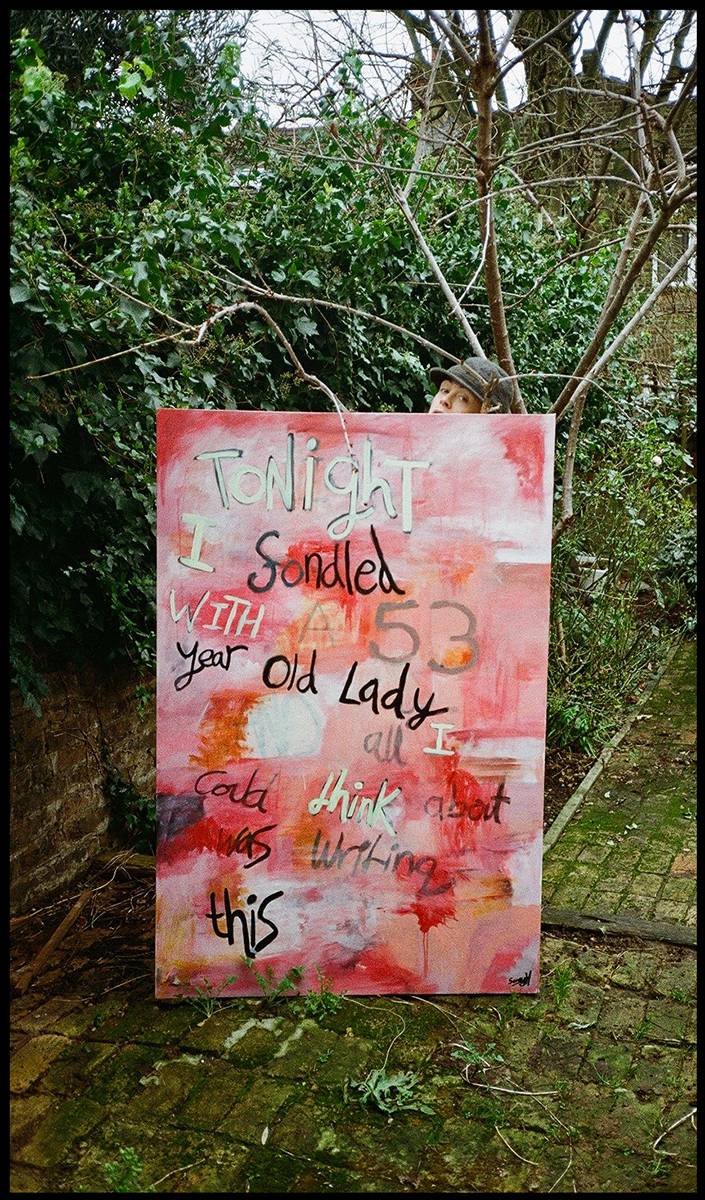 TONighT
I fondled
WITH A 53
year Old Lady
all I
Could think about
was writing
this